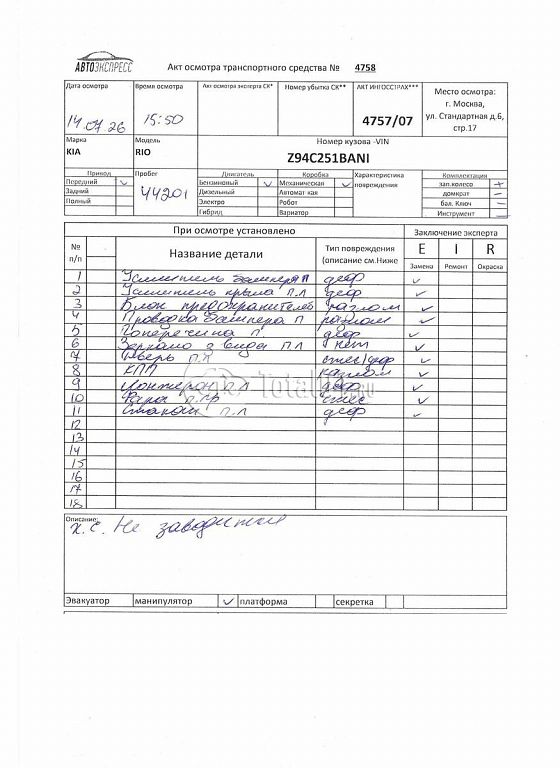 АВТОЭКСПРЕСС
Акт осмотра транспортного средства № 4758
Дата осмотра
14.07.26
Время осмотра
15:50
Акт осмотра эксперта СК*
Номер убытка СК**
АКТ ИНГОССТРАХ***
4757/07
Место осмотра:
г. Москва,
ул. Стандартная д.6,
стр.17
Марка
KIA
Модель
RIO
Номер кузова -VIN
Z94C251BANI
Привод
Передний
Задний
Полный
Пробег
44201
Двигатель
Бензиновый
Дизельный
Электро
Гибрид
Коробка
Механическая
Автомат кая
Робот
Вариатор
Характеристика
повреждения
Комплектация
зап.колесо +
домкрат -
бал. Ключ -
Инструмент -
При осмотре установлено
Заключение эксперта
№
п/п
Название детали
Тип повреждения
(описание см.Ниже
E I R
Замена Ремонт Окраска
1 Усилитель бампера П деф
2 Усилитель крыла П.Л деф
3 Блок предохранителей разлом
4 Проводка бампера П разлом
5 Поперечина П деф
6 Зеркало з вида П.Л нет
7 Дверь П.Л
8 КПП разлом
9 Лонжерон П.Л деф
10 Фара
11 Стакан П.Л деф
12
13
14
15
16
17
18
Описание:
Х.С. Не заводится
Эвакуатор манипулятор платформа секретка